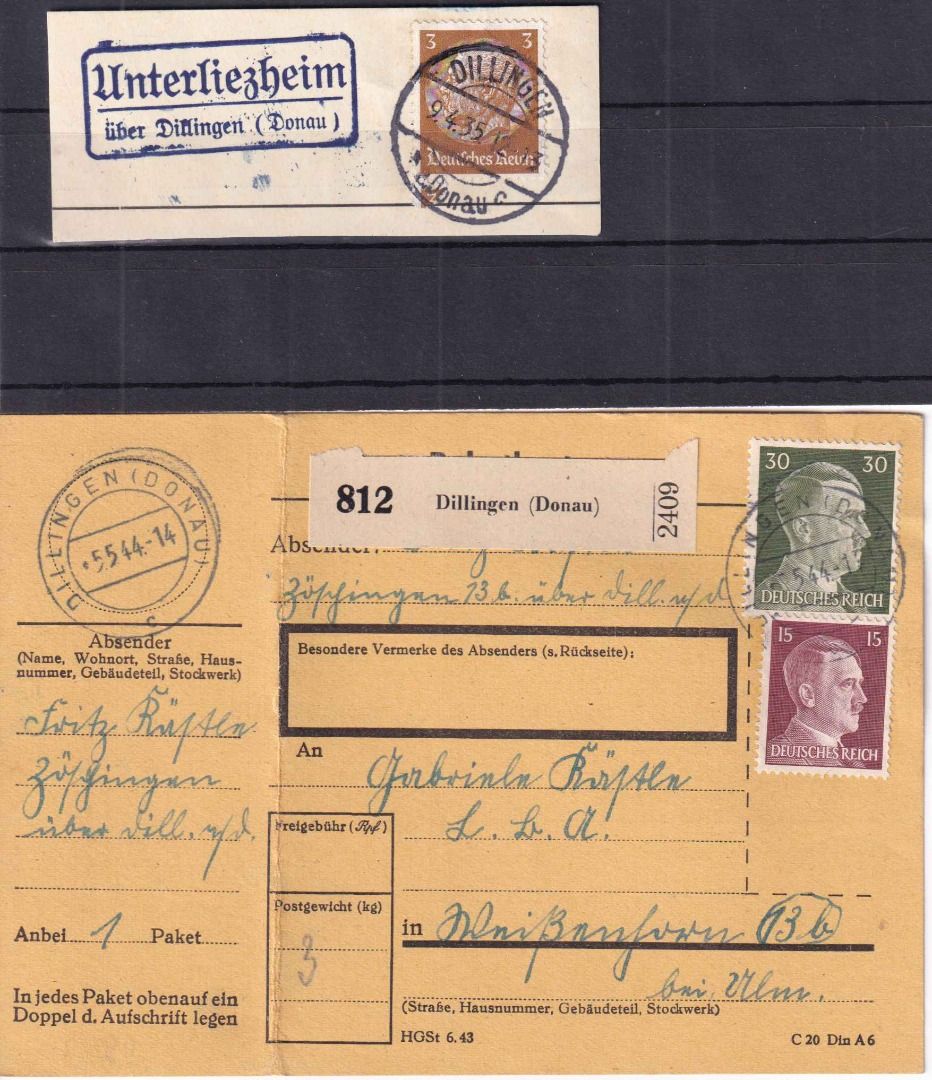 Unterliezheim
über Dillingen (Donau)
3 3
Deutsches Reich
DILLINGEN
9.4.35
(Donau) c
DILLINGEN (DONAU)
5.5.44.-14
c
812 Dillingen (Donau) 2409
Absender:
Zöschingen 13b. über Dill. a/d
30 30
DEUTSCHES REICH
DILLINGEN (DONAU)
5.44.-14
15 15
DEUTSCHES REICH
Absender
(Name, Wohnort, Straße, Haus-
nummer, Gebäudeteil, Stockwerk)
Fritz Kästle
Zöschingen
über Dill. a/d.
Anbei 1 Paket
In jedes Paket obenauf ein
Doppel d. Aufschrift legen
Besondere Vermerke des Absenders (s. Rückseite):
An
Gabriele Kästle
L. B. A.
Freigebühr (Rpf)
Postgewicht (kg)
3
in Weißenhorn 13b
bei Ulm.
(Straße, Hausnummer, Gebäudeteil, Stockwerk)
HGSt 6.43
C 20 Din A6